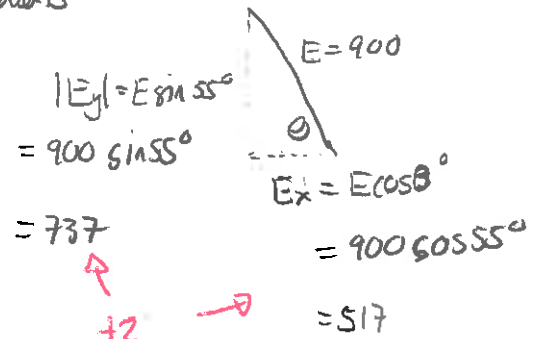 E=900
|Ey|=E sin 55°
= 900 sin55°
= 737
θ
Ex = Ecosθ°
= 900 cos 55°
= 517
+2